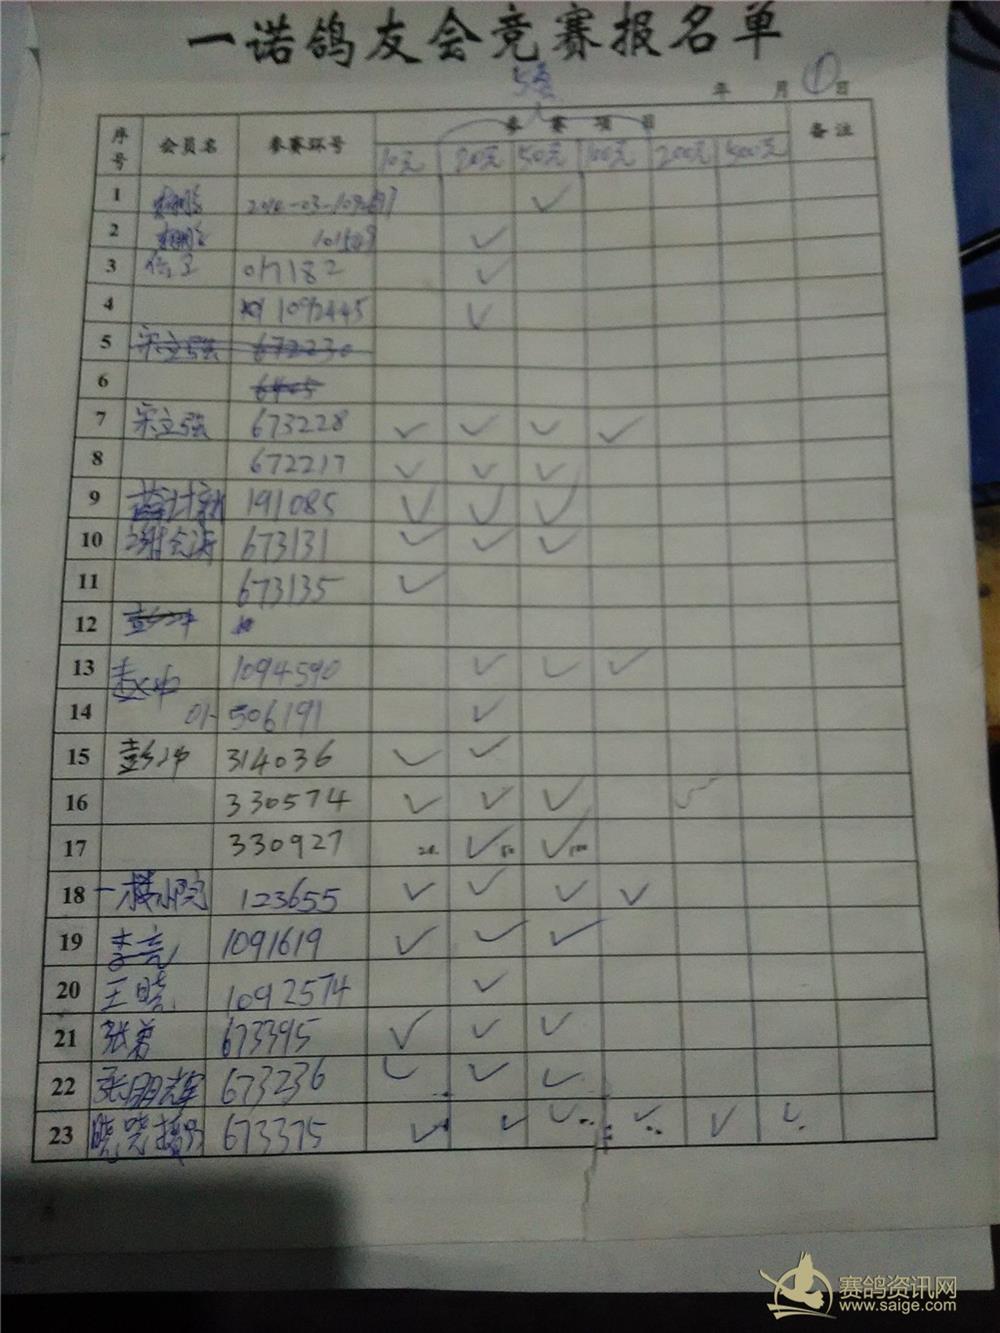 一诺鸽友会竞赛报名单
年 月 ① 日
序号 会员名 参赛环号 参赛项目 备注
10元 20元 50元 100元 200元 500元
1 ✓
2 ✓
3 017182 ✓
4 1092445 ✓
5 宋立强 672230
6
7 宋立强 673228 ✓ ✓ ✓ ✓
8 672217 ✓ ✓ ✓
9 191085 ✓ ✓ ✓
10 673131 ✓ ✓ ✓
11 673135 ✓
12 彭冲
13 1094590 ✓ ✓ ✓
14 01-506191 ✓
15 彭冲 314036 ✓ ✓
16 330574 ✓ ✓ ✓ ✓
17 330927 20 ✓ 50 ✓ 100
18 123655 ✓ ✓ ✓ ✓
19 李亮 1091619 ✓ ✓ ✓
20 王晓 1092574 ✓
21 673395 ✓ ✓ ✓
22 张朋辉 673236 ✓ ✓ ✓
23 673375 ✓ ✓ ✓ ✓ ✓ ✓
赛鸽资讯网
www.saige.com